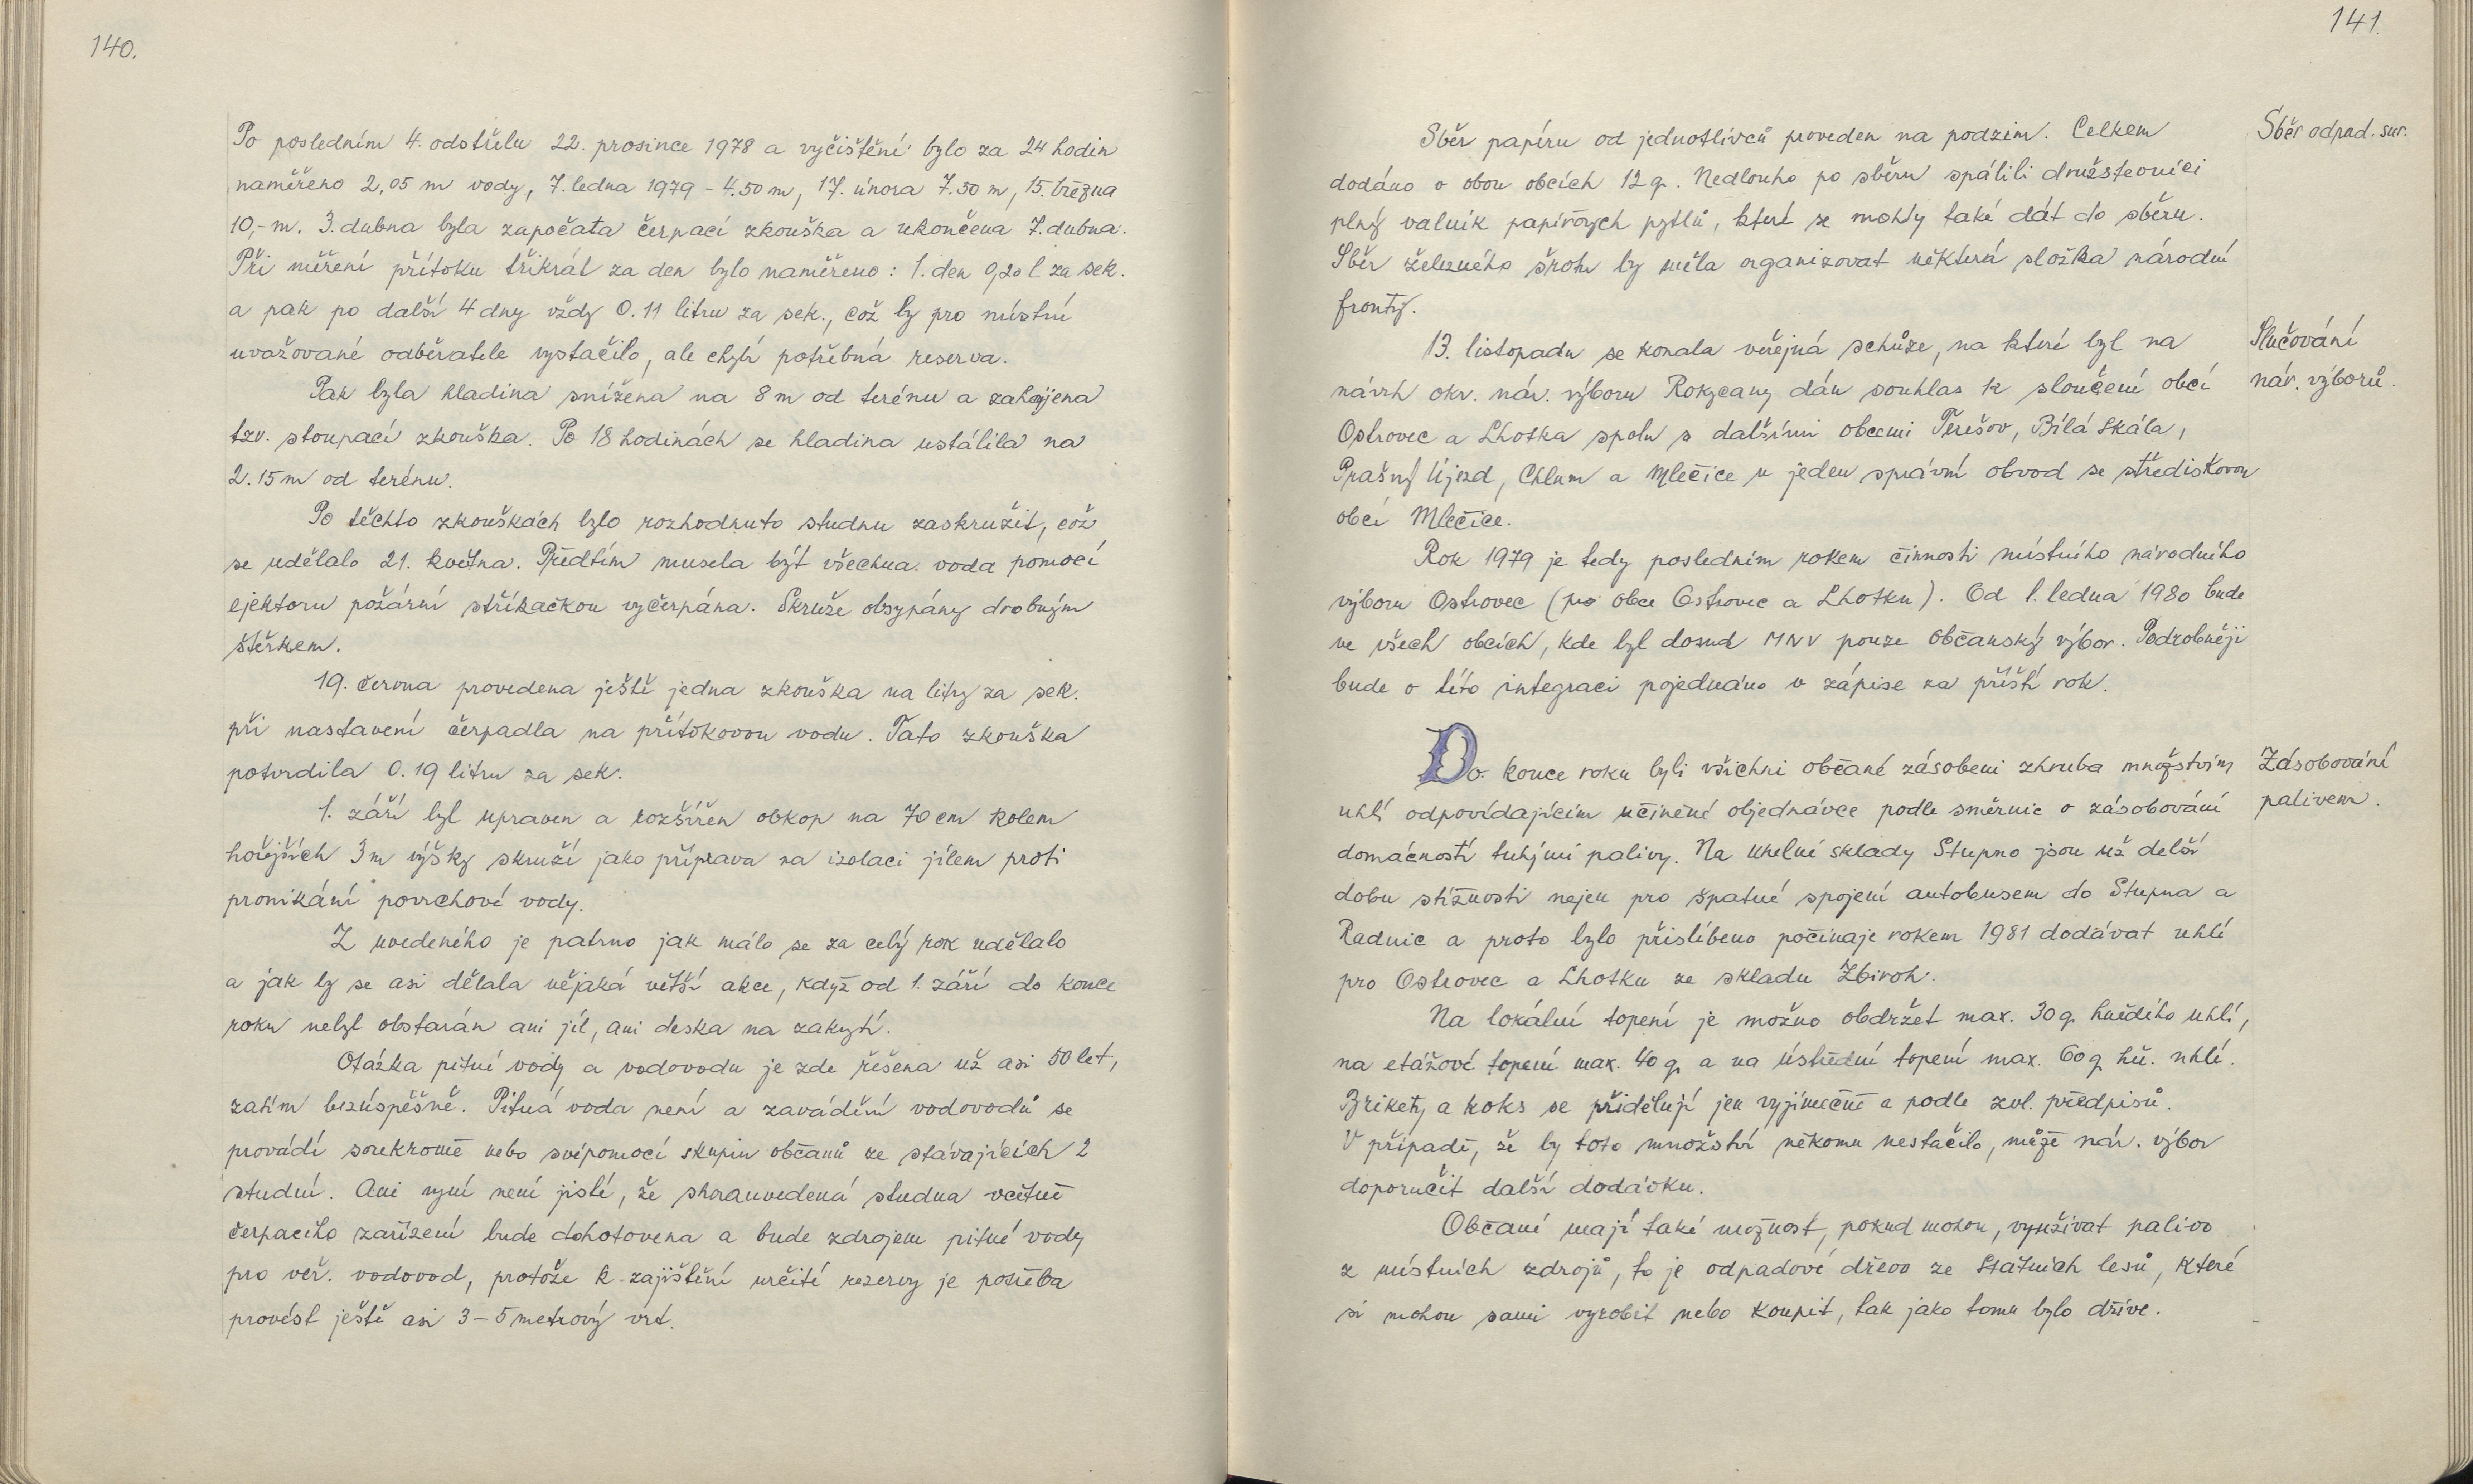 140.
Po posledním 4. odstřelu 22. prosince 1978 a vyčištění bylo za 24 hodin
naměřeno 2,05 m vody, 7. ledna 1979 - 4.50 m, 17. února 7.50 m, 15. března
10,- m. 3. dubna byla započata čerpací zkouška a ukončena 7. dubna.
Při měření přítoku třikrát za den bylo naměřeno: 1. den 0,20 l za sek.
a pak po další 4 dny vždy 0.11 litru za sek., což by pro místní
uvažované odběratele vystačilo, ale chybí potřebná reserva.
Pak byla hladina snížena na 8 m od terénu a zahájena
tzv. stoupací zkouška. Po 18 hodinách se hladina ustálila na
2.15 m od terénu.
Po těchto zkouškách bylo rozhodnuto studnu zaskružit, což
se udělalo 21. května. Předtím musela být všechna voda pomocí
ejektoru požární stříkačkou vyčerpána. Skruže obsypány drobným
štěrkem.
19. června provedena ještě jedna zkouška na litry za sek.
při nastavení čerpadla na přítokovou vodu. Tato zkouška
potvrdila 0.19 litru za sek.
1. září byl upraven a rozšířen obkop na 70 cm kolem
hořejších 3 m výšky skruží jako příprava na izolaci jílem proti
pronikání povrchové vody.
Z uvedeného je patrno jak málo se za celý rok udělalo
a jak by se asi dělala nějaká větší akce, když od 1. září do konce
roku nebyl obstarán ani jíl, ani deska na zakrytí.
Otázka pitné vody a vodovodu je zde řešena už asi 50 let,
zatím bezúspěšně. Pitná voda není a zavádění vodovodů se
provádí soukromě nebo svépomocí skupin občanů ze stávajících 2
studní. Ani nyní není jisté, že shorauvedená studna včetně
čerpacího zařízení bude dohotovena a bude zdrojem pitné vody
pro veř. vodovod, protože k zajištění určité rezervy je potřeba
provést ještě asi 3-5 metrový vrt.
141.
Sběr odpad. sur.
Sběr papíru od jednotlivců proveden na podzim. Celkem
dodáno v obou obcích 12 q. Nedlouho po sběru spálili družstevníci
plný valník papírových pytlů, které se mohly také dát do sběru.
Sběr železného šrotu by měla organizovat některá složka národní
fronty.
Slučování
nár. výborů.
13. listopadu se konala veřejná schůze, na které byl na
návrh okr. nár. výboru Rokycany dán souhlas k sloučení obcí
Ostrovec a Lhotka spolu s dalšími obcemi Terešov, Bílá Skála,
Prašný Újezd, Chlum a Mlečice v jeden správní obvod se střediskovou
obcí Mlečice.
Rok 1979 je tedy posledním rokem činnosti místního národního
výboru Ostrovec (pro obce Ostrovec a Lhotku). Od 1. ledna 1980 bude
ve všech obcích, kde byl dosud MNV pouze Občanský výbor. Podrobněji
bude o této integraci pojednáno v zápise za příští rok.
Zásobování
palivem.
Do konce roku byli všichni občané zásobeni zhruba množstvím
uhlí odpovídajícím učiněné objednávce podle směrnic o zásobování
domácností tuhými palivy. Na uhelné sklady Stupno jsou už delší
dobu stížnosti nejen pro špatné spojení autobusem do Stupna a
Radnic a proto bylo přislíbeno počínaje rokem 1981 dodávat uhlí
pro Ostrovec a Lhotku ze skladu Zbiroh.
Na lokální topení je možno obdržet max. 30 q hnědého uhlí,
na etážové topení max. 40 q a na ústřední topení max. 60 q hň. uhlí.
Brikety a koks se přidělují jen vyjímečně a podle zvl. předpisů.
V případě, že by toto množství někomu nestačilo, může nár. výbor
doporučit další dodávku.
Občané mají také možnost, pokud mohou, využívat palivo
z místních zdrojů, to je odpadové dřevo ze Státních lesů, které
si mohou sami vyrobit nebo koupit, tak jako tomu bylo dříve.